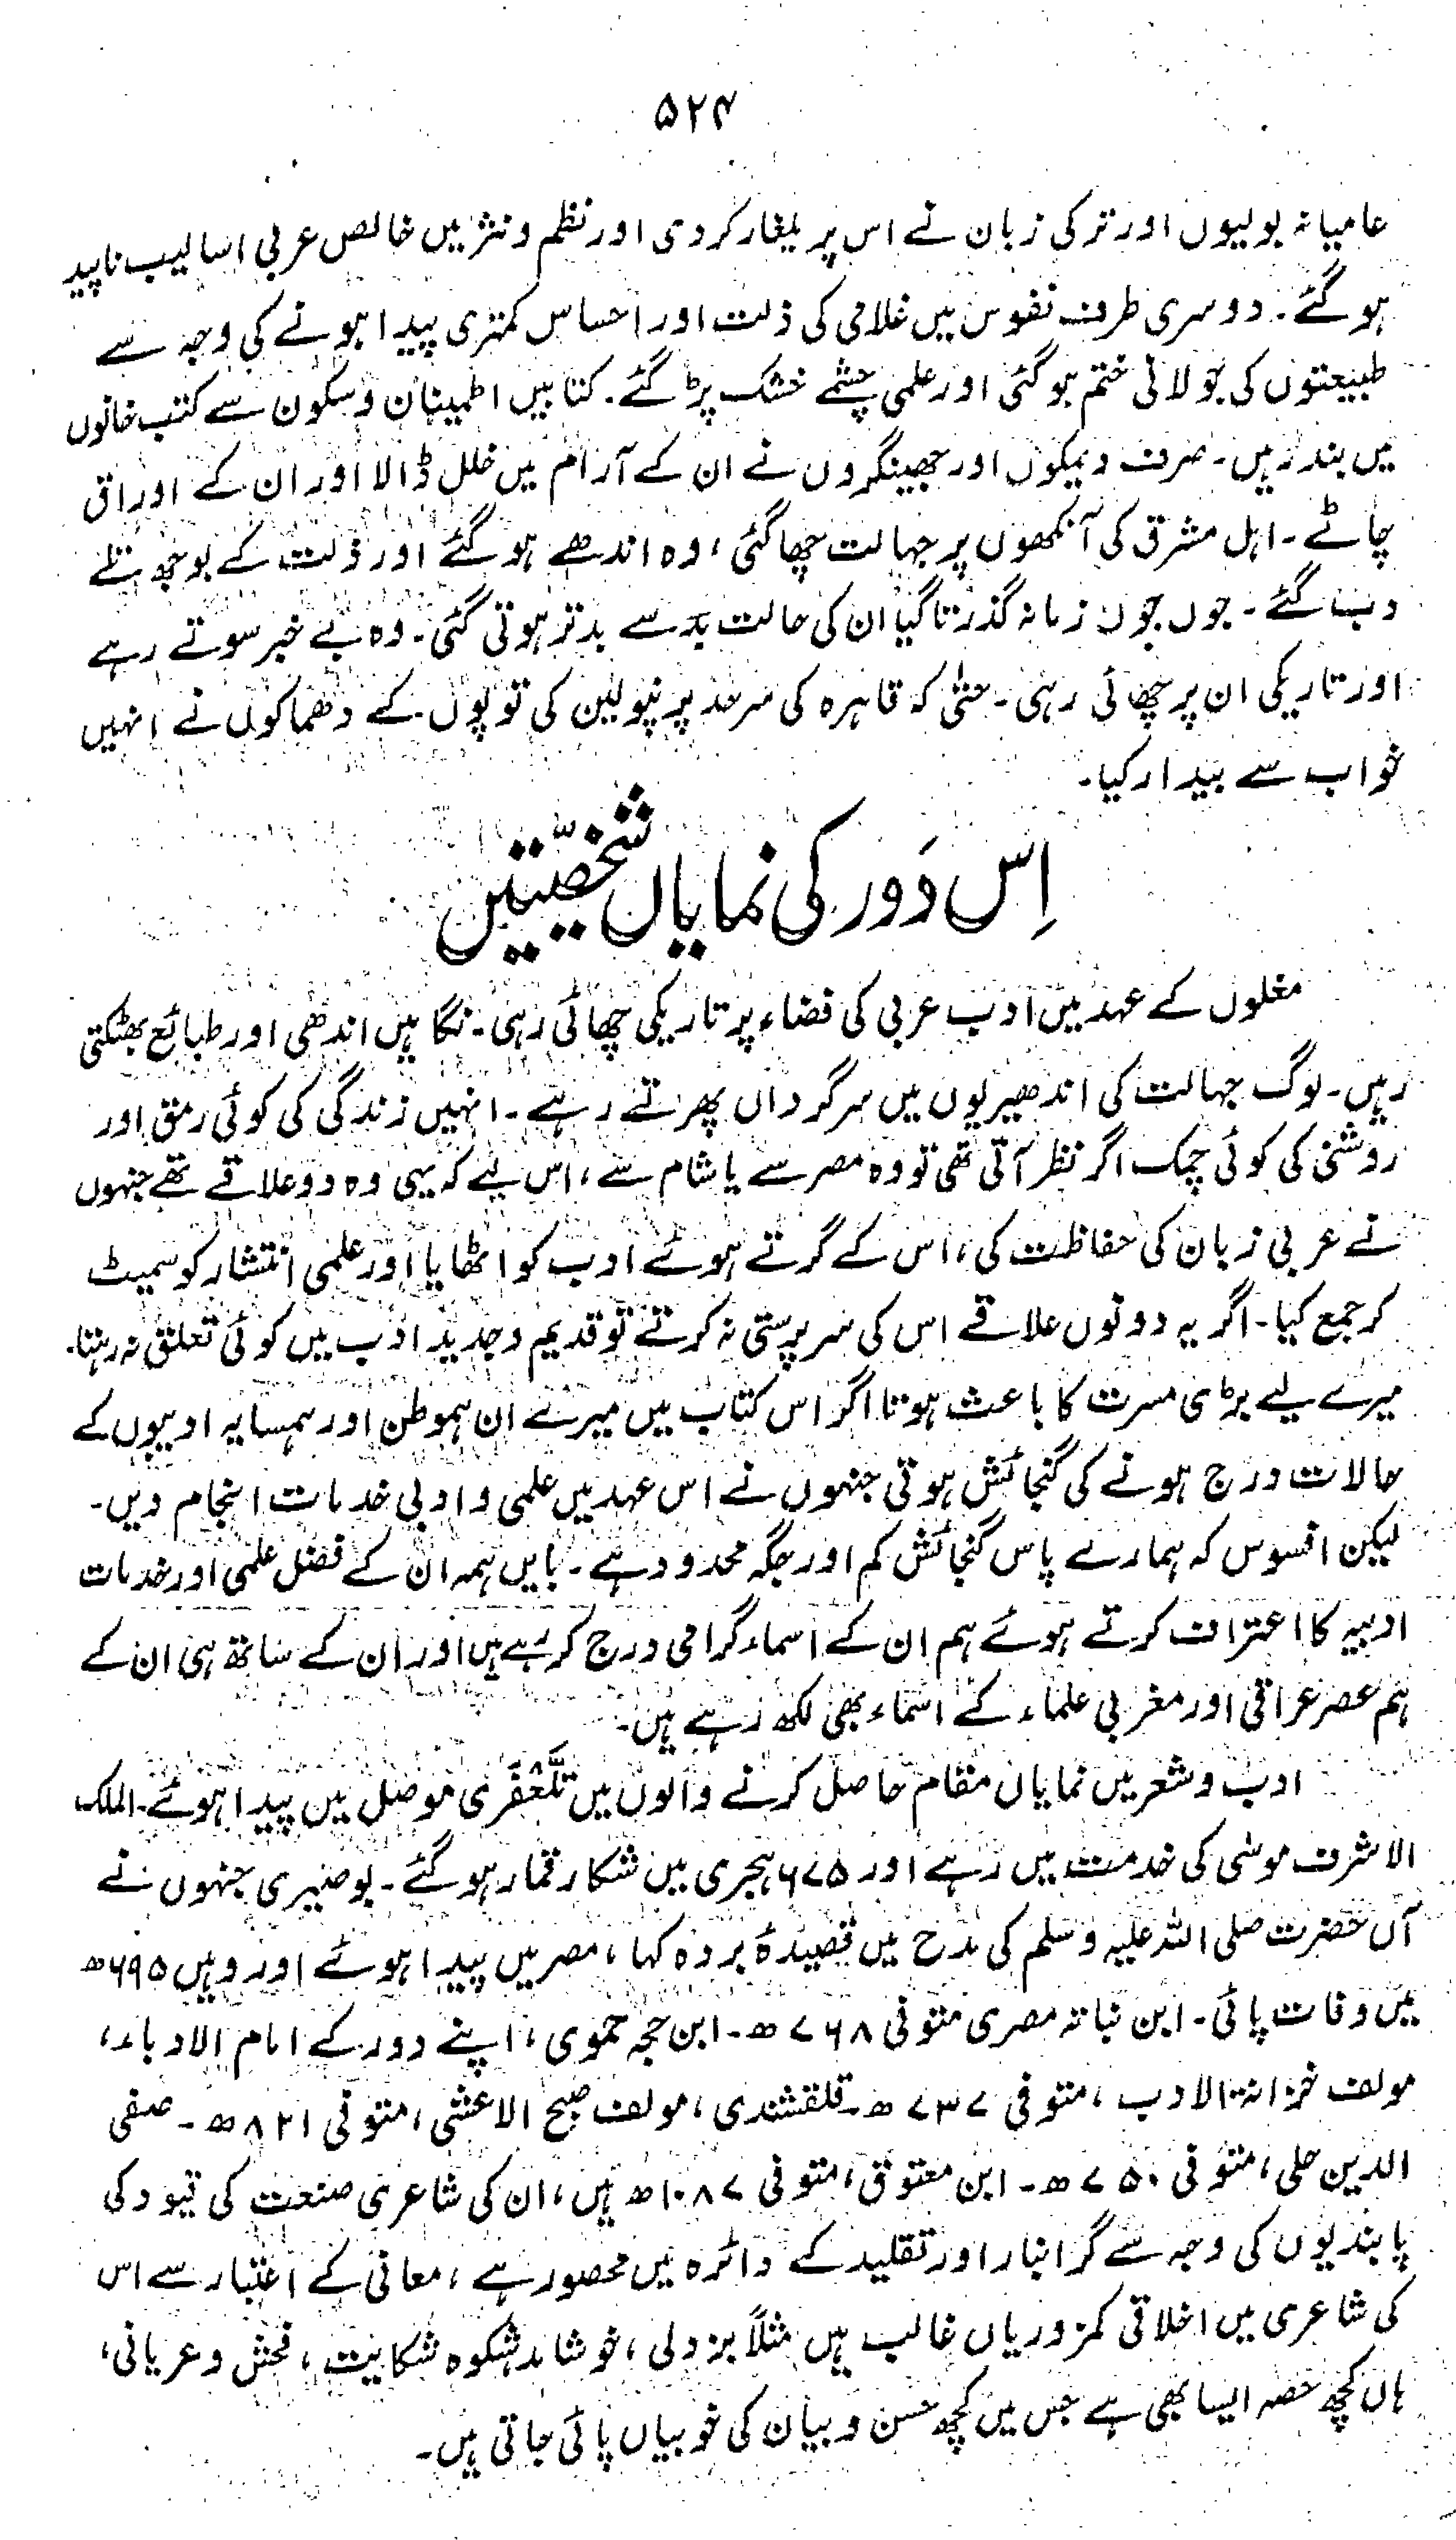 ۵۲۴
عامیانہ بولیوں اور ترکی زبان نے اس پر یلغار کر دی اور نظم و نثر میں خالص عربی اسالیب ناپید
ہو گئے۔ دوسری طرف نفوس میں غلامی کی ذلت اور احساس کمتری پیدا ہونے کی وجہ سے
طبیعتوں کی جولانی ختم ہو گئی اور علمی چشمے خشک پڑ گئے۔ کتابیں اطمینان و سکون سے کتب خانوں
میں بند رہیں۔ صرف دیمکوں اور جھینگروں نے ان کے آرام میں خلل ڈالا اور ان کے اوراق
چاٹے۔ اہل مشرق کی آنکھوں پر جہالت چھا گئی، وہ اندھے ہو گئے اور ذلت کے بوجھ تلے
دب گئے۔ جوں جوں زمانہ گذرتا گیا ان کی حالت بد سے بدتر ہوتی گئی۔ وہ بے خبر سوتے رہے
اور تاریکی ان پر چھائی رہی۔ حتیٰ کہ قاہرہ کی سرحد پر نپولین کی توپوں کے دھماکوں نے انہیں
خواب سے بیدار کیا۔
اِس دَور کی نمایاں شخصیّتیں
مغلوں کے عہد میں ادب عربی کی فضاء پر تاریکی چھائی رہی۔ نگاہیں اندھی اور طبائع بھٹکتی
رہیں۔ لوگ جہالت کی اندھیریوں میں سرگرداں پھرتے رہے۔ انہیں زندگی کی کوئی رمق اور
روشنی کی کوئی چمک اگر نظر آتی تھی تو وہ مصر سے یا شام سے، اس لیے کہ یہی وہ دو علاقے تھے جنہوں
نے عربی زبان کی حفاظت کی، اس کے گرتے ہوئے ادب کو اٹھایا اور علمی انتشار کو سمیٹ
کر جمع کیا۔ اگر یہ دونوں علاقے اس کی سرپرستی نہ کرتے تو قدیم و جدید ادب میں کوئی تعلق نہ رہتا۔
میرے لیے بڑی مسرت کا باعث ہوتا اگر اس کتاب میں میرے ان ہموطن اور ہمسایہ ادیبوں کے
حالات درج ہونے کی گنجائش ہوتی جنہوں نے اس عہد میں علمی و ادبی خدمات انجام دیں۔
لیکن افسوس کہ ہمارے پاس گنجائش کم اور جگہ محدود ہے۔ بایں ہمہ ان کے فضل علمی اور خدمات
ادبیہ کا اعتراف کرتے ہوئے ہم ان کے اسماء گرامی درج کر رہے ہیں اور ان کے ساتھ ہی ان کے
ہم عصر عراقی اور مغربی علماء کے اسماء بھی لکھ رہے ہیں۔
ادب و شعر میں نمایاں مقام حاصل کرنے والوں میں تَلَّعْفَری موصل میں پیدا ہوئے۔ الملک
الاشرف موسٰی کی خدمت میں رہے اور ۶۷۵ ہجری میں شکار قمار ہو گئے۔ بوصیری جنہوں نے
آں حضرت صلی اللہ علیہ وسلم کی مدح میں قصیدۂ بردہ کہا، مصر میں پیدا ہوئے اور وہیں ۶۹۵ھ
میں وفات پائی۔ ابن نباتہ مصری متوفی ۷۶۸ھ۔ ابن حجہ حموی، اپنے دور کے امام الادباء،
مولف خزانۃ الادب، متوفی ۷۳۷ھ۔ قلقشندی، مولف صبح الاعشی، متوفی ۸۲۱ھ۔ صفی
الدین حلی، متوفی ۷۵۰ھ۔ ابن معتوق، متوفی ۱۰۸۷ھ ہیں، ان کی شاعری صنعت کی قیود کی
پابندیوں کی وجہ سے گرانبار اور تقلید کے دائرہ میں محصور ہے، معانی کے اعتبار سے اس
کی شاعری میں اخلاقی کمزوریاں غالب ہیں مثلاً بزدلی، خوشامد شکوہ شکایت، فحش و عریانی،
ہاں کچھ حصہ ایسا بھی ہے جس میں کچھ حسن و بیان کی خوبیاں پائی جاتی ہیں۔